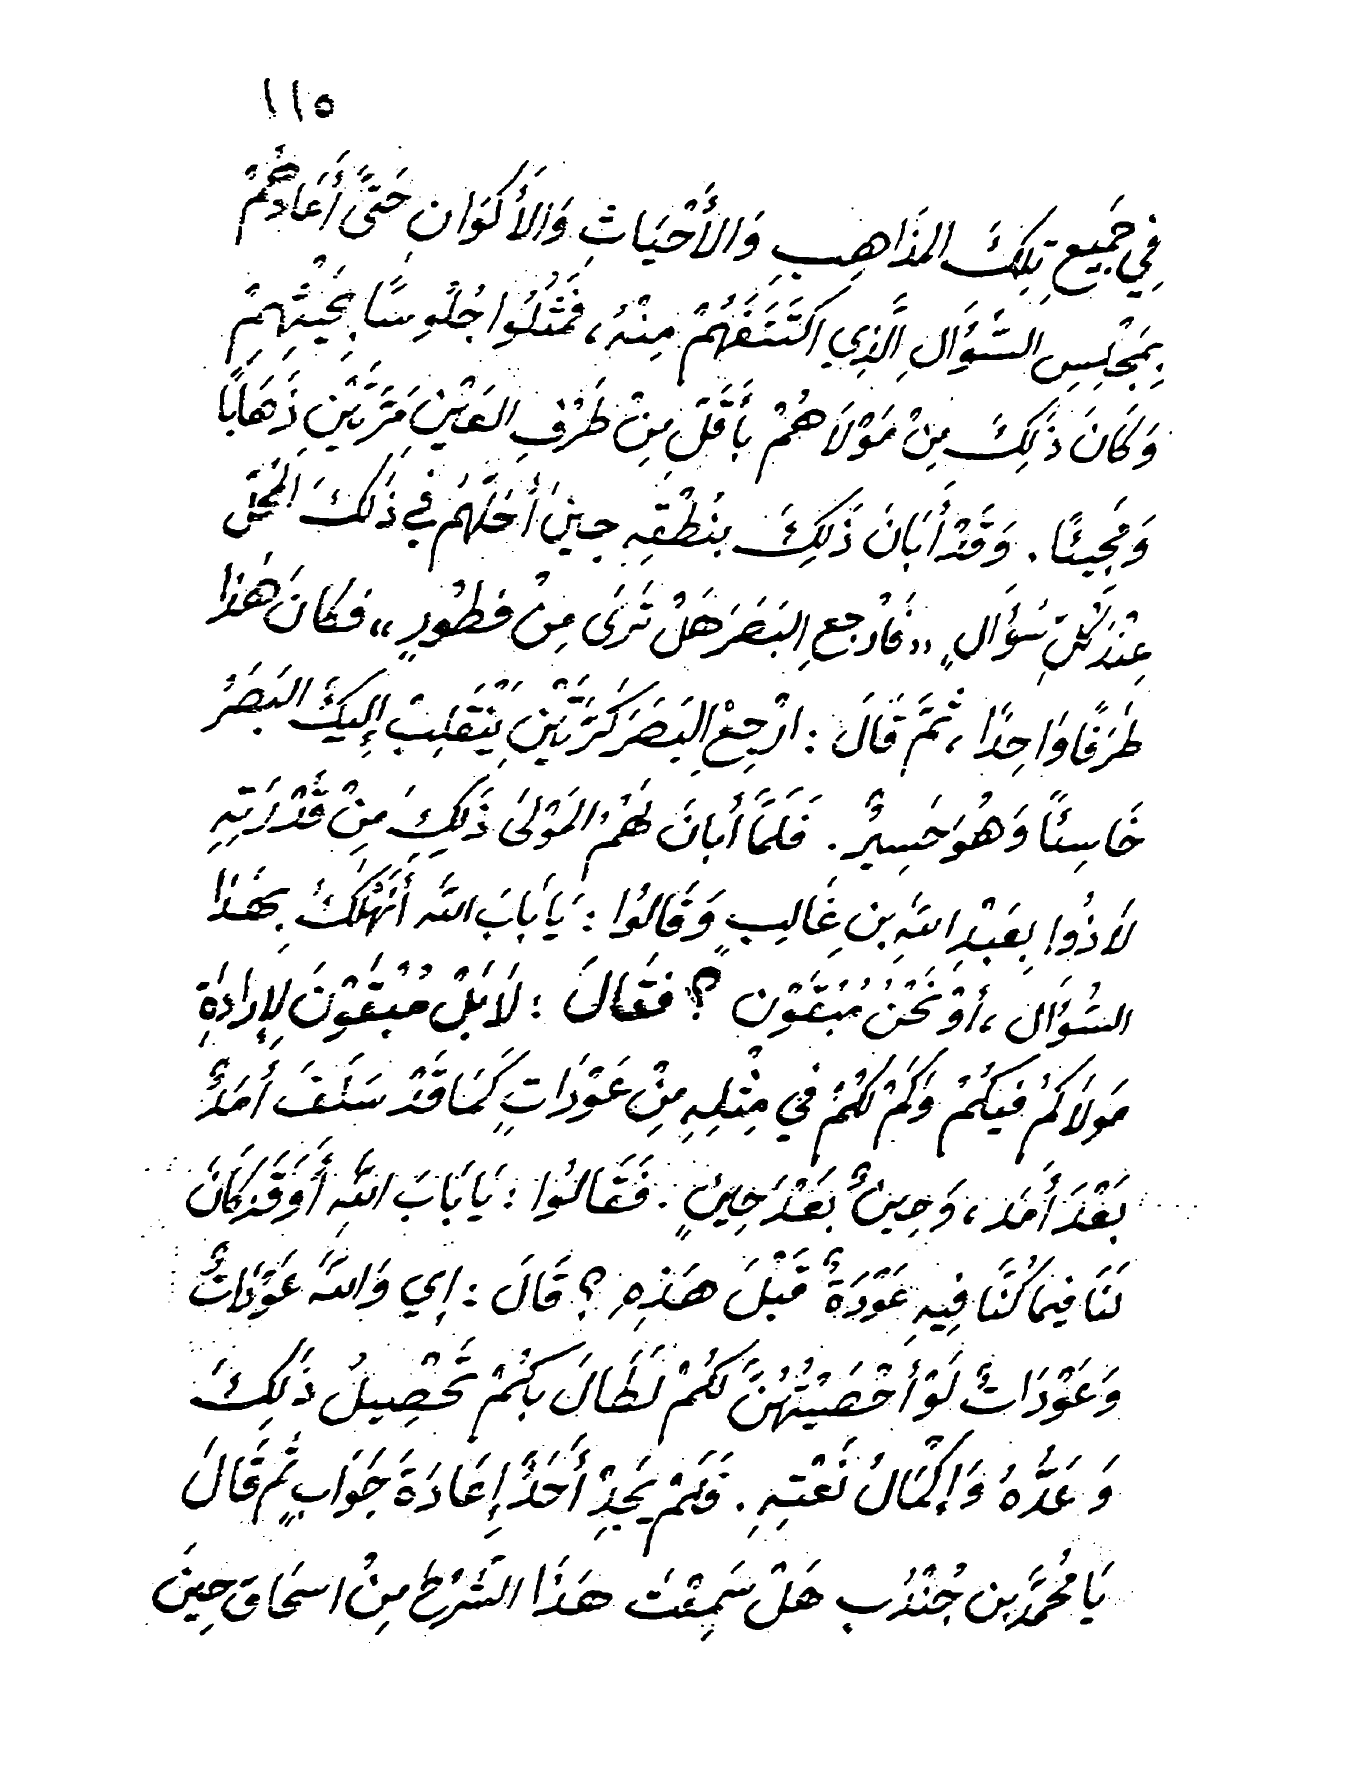 ١١٥
فِي جَمِيعِ تِلِكَ المَذَاهِبِ وَالأَحْيَاثِ وَالأَكْوَانِ حَتَّى أَعَادَهُمْ
بِمَجْلِسِ السُّؤَالِ الَّذِي اكْتَنَفَهُمْ مِنْهُ، فَمَثُلُوا جُلُوسًا بِحَيْثِهِمْ
وَكَانَ ذَلِكَ مِنْ مَوْلَاهُمْ بأَقَلِّ مِنْ طَرْفِ العَيْنِ مَرَّتَيْنِ ذَهَابًا
وَمَجِيئًا. وَقَدْ أَبَانَ ذَلِكَ بِنُطْقِهِ حِينَ أَحَلَّهُم فِي ذَلكَ المَحَلِّ
عِنْدَ كُلِّ سُؤَالٍ «فَارْجِعِ البَصَرَ هَلْ تَرَى مِنْ فطُورٍ» فكانَ هَذا
طَرَفًا وَاحِدًا، ثُمَّ قَالَ: ارْجِعِ البَصَرَ كَرَّتَيْنِ يَنْقَلِبْ إِلَيكَ البَصَرُ
خَاسِئاً وَهُوَ حَسِيرٌ. فَلَمَّا أَبانَ لَهُمْ المَوْلَى ذَلِكَ مِنْ قُدْرَتِهِ
لَاذُوا بِعَبْدِ اللهِ بنِ غَالِبٍ وَقَالُوا: يَا بَابَ الله أَنَهْلَكُ بِهَذَا
السُؤَال، أوْ نَحْنُ مُبْقَوْن؟ فقَالَ: لَا بَلْ مُبْقَوْنَ لِإِرَادَةِ
مَولَاكُمْ فيكُمْ وَكَمْ لَكُمْ فِي مِثْلِهِ مِنْ عَوْدَاتٍ كَمَا قَدْ سَلَفَ أَمَدٌ
بَعْدَ أَمَد، وَحِينٌ بَعْدَ حِينٍ. فَقَالُوا: يَا بَابَ اللهِ أَوَقَد كَانَ
لَنَا فِيمَا كُنَّا فِيهِ عَوْدَةٌ قَبْلَ هَذِهِ؟ قَالَ: إِي وَالله عَوْدَاتٌ
وَعَوْدَاتٌ لَوْ أَحْصَيْتُهُنَّ لَكُمْ لَطَالَ بِكُمْ تَحْصِيلُ ذَلِكَ
وَعَدُّهُ وَإِكْمَالُ نَعْتِهِ. فَلَمْ يَجِدْ أَحَدٌ إِعَادَةَ جَوَابٍ ثُم قَالَ
يَا مُحمَّدَ بن جُنْدُب هَلْ سَمِعْتَ هَذَا الشَرْحَ مِنْ اسحَاقَ حِينَ